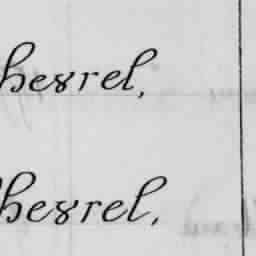 hexrel,
hexrel,